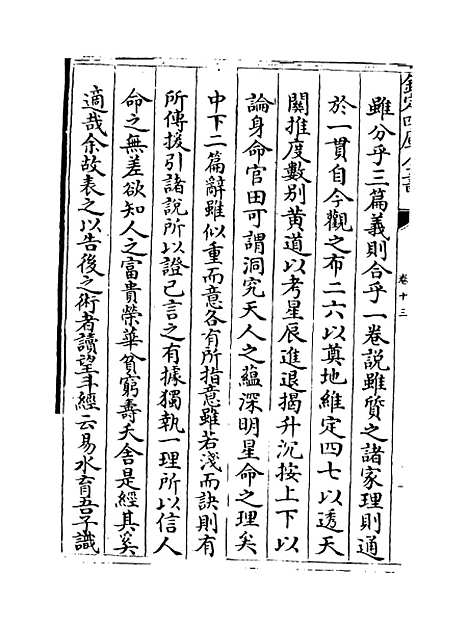 欽定四庫全書
卷十三
雖分乎三篇義則合乎一卷說雖質之諸家理則通
於一貫自今觀之布二六以奠地維定四七以透天
關推度數別黄道以考星辰進退揭升沉按上下以
論身命官田可謂洞究天人之藴深明星命之理矣
中下二篇辭雖似重而意各有所指意雖若淺而訣則有
所傳援引諸說所以證己言之有據獨執一理所以信人
命之無差欲知人之富貴榮華貧窮壽夭舍是經其奚
適哉余故表之以告後之術者讀望斗經云易水育吾子識